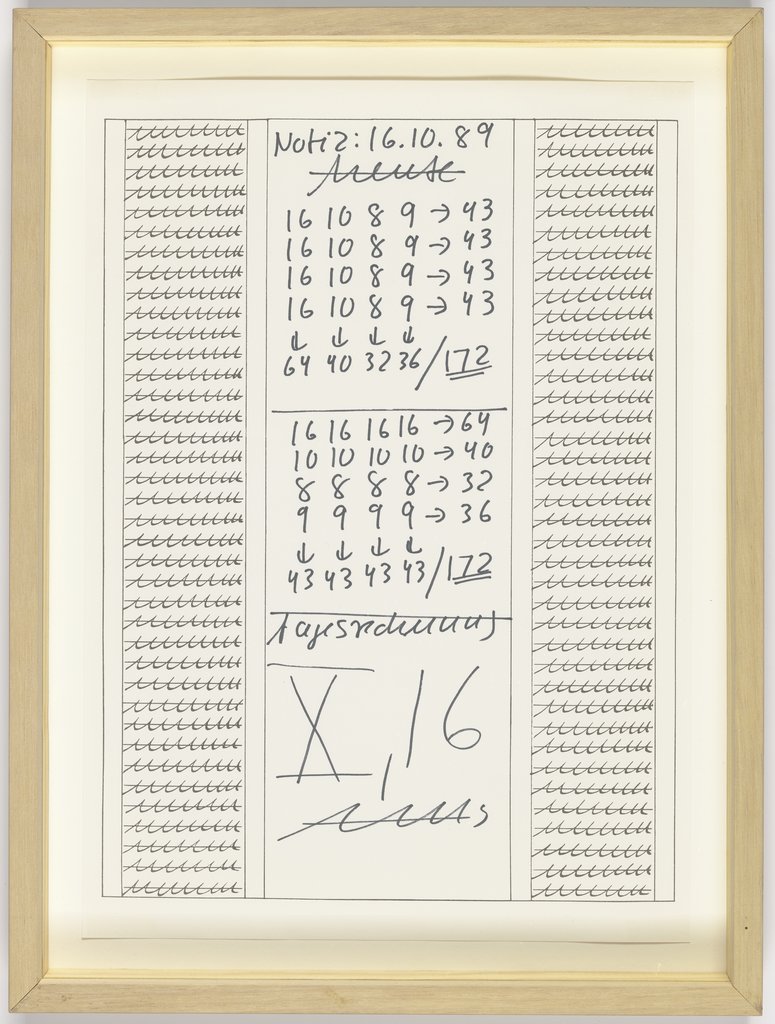 Notiz: 16.10.89
heute
16 10 8 9 → 43
16 10 8 9 → 43
16 10 8 9 → 43
16 10 8 9 → 43
↓ ↓ ↓ ↓
64 40 32 36 / 172
16 16 16 16 → 64
10 10 10 10 → 40
8 8 8 8 → 32
9 9 9 9 → 36
↓ ↓ ↓ ↓
43 43 43 43 / 172
Tagesrechnung
X, 16